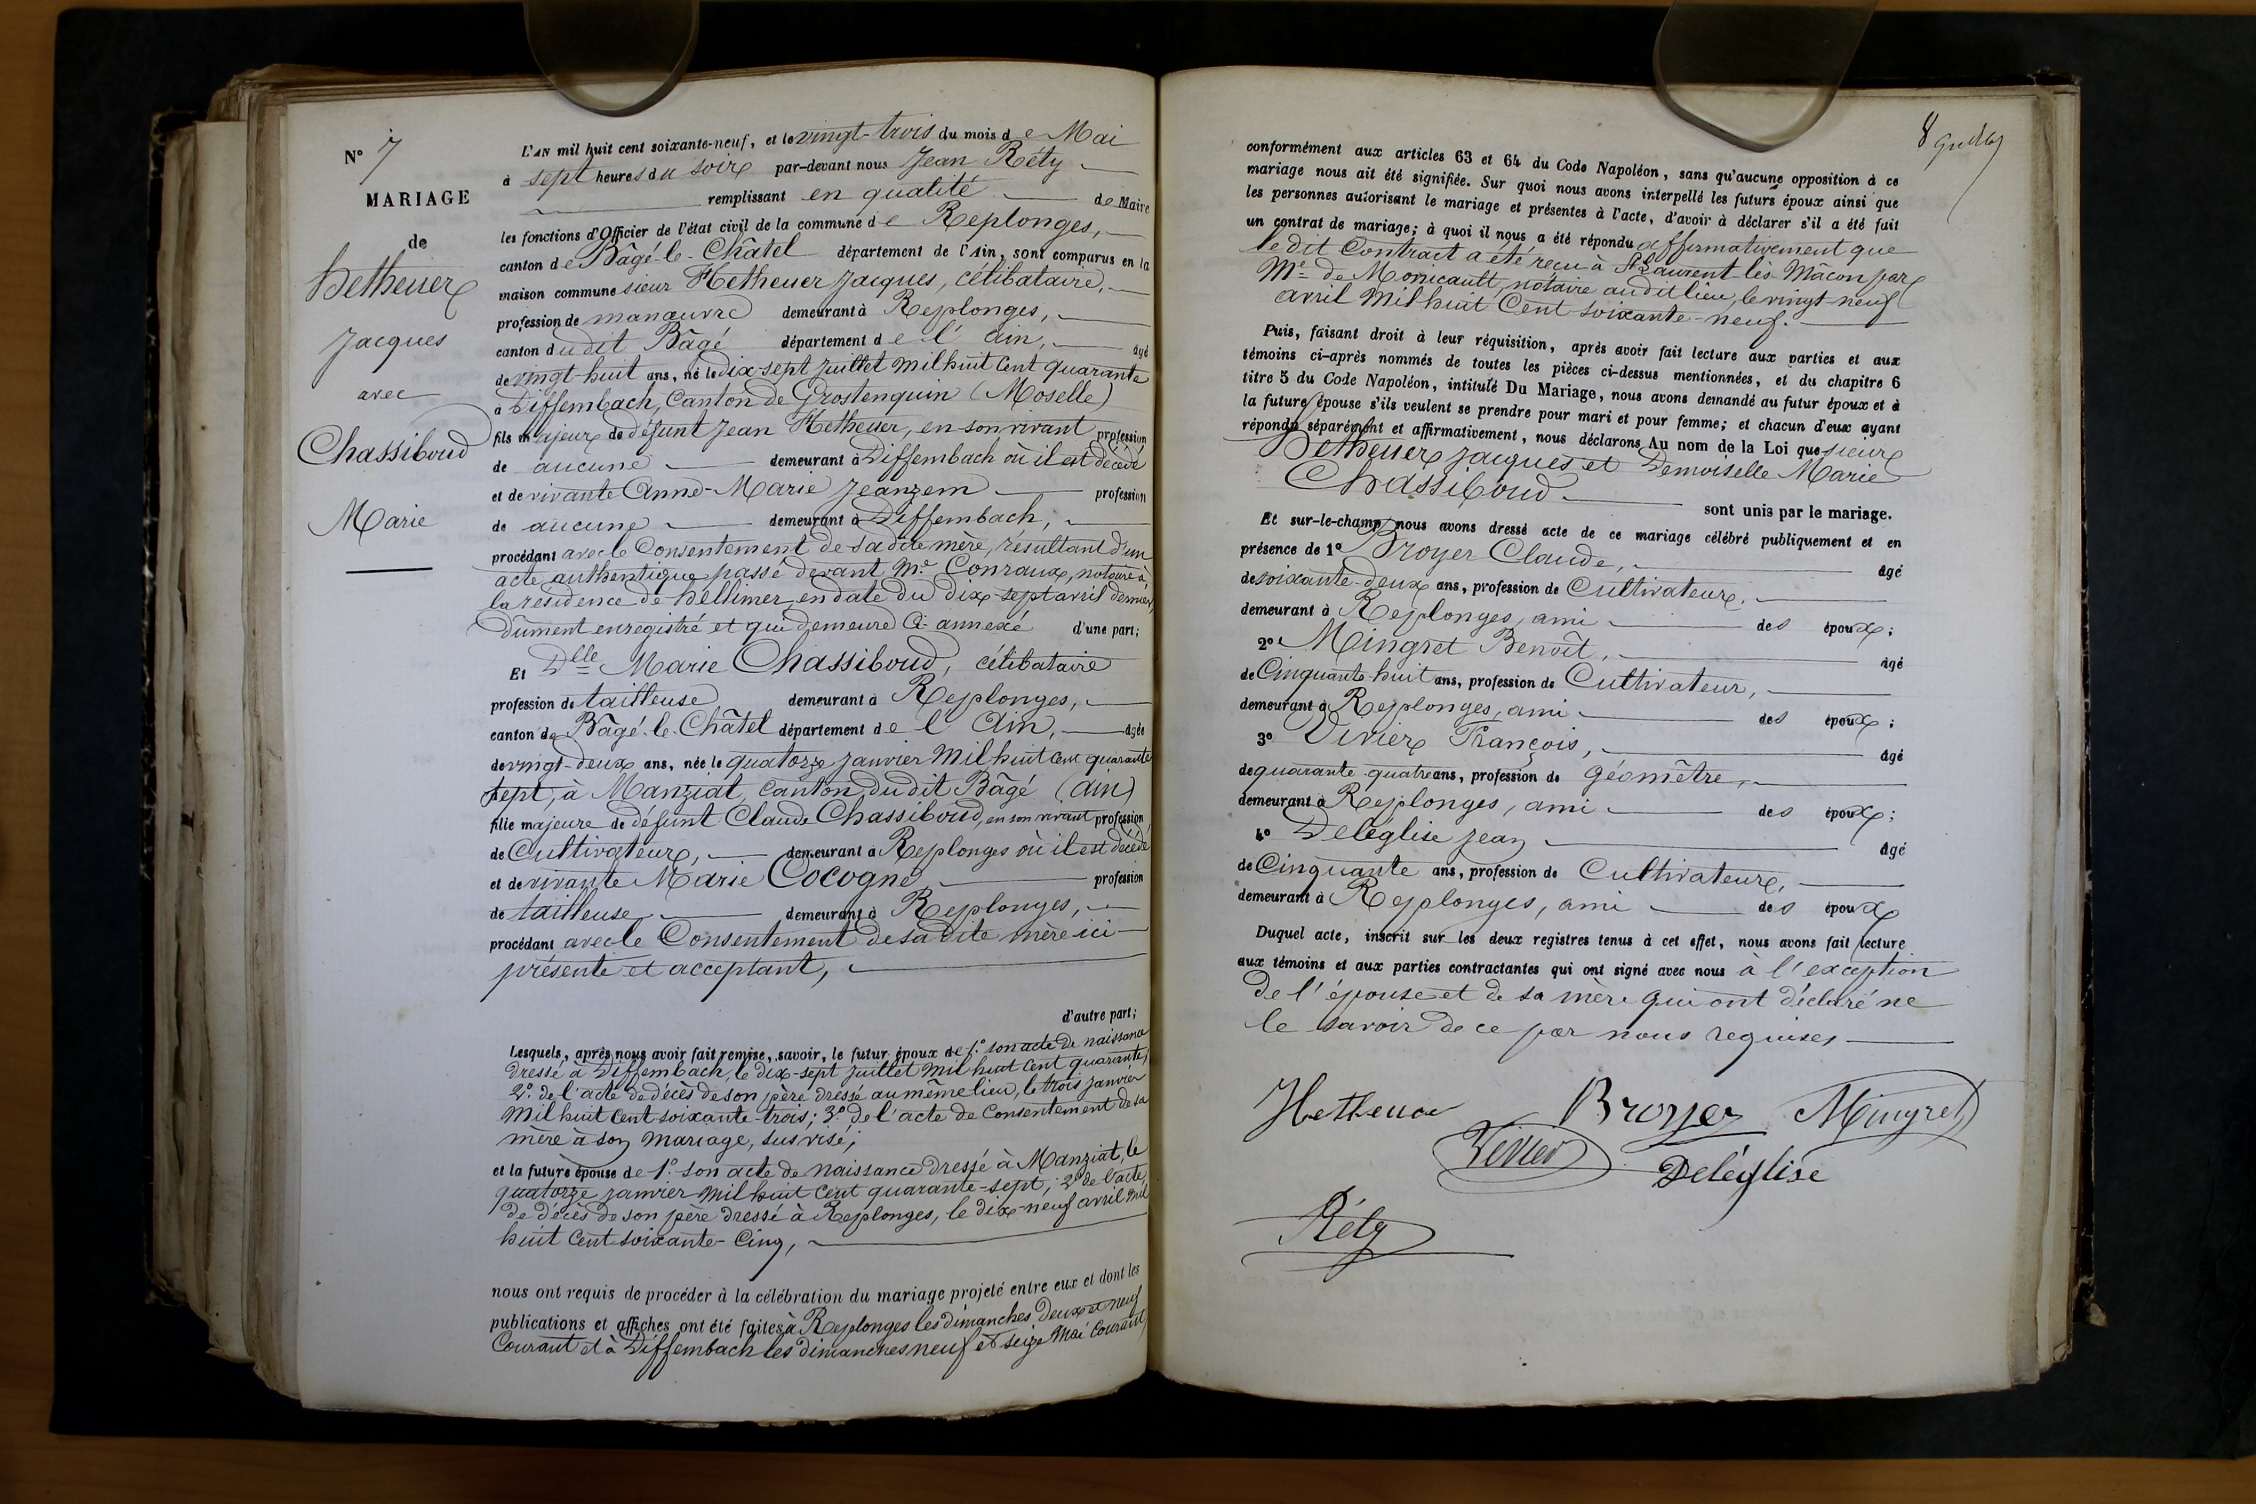 N° 7
MARIAGE
de
Hetheuer
Jacques
avec
Chassiboud
Marie
L'AN mil huit cent soixante-neuf, et le vingt-trois du mois de Mai
à sept heures du soir par-devant nous Jean Réty
remplissant en qualité de Maire
les fonctions d'Officier de l'état civil de la commune de Replonges,
canton de Bâgé-le-Châtel département de l'Ain, sont comparus en la
maison commune sieur Hetheuer Jacques, célibataire,
profession de manœuvre demeurant à Replonges,
canton dudit Bâgé département de l'Ain, âgé
de vingt-huit ans, né le dix-sept juillet mil huit cent quarante
à Diffembach, Canton de Grostenquin (Moselle)
fils majeur de défunt Jean Hetheuer, en son vivant profession
de aucune demeurant à Diffembach où il est décédé
et de vivante Anne-Marie Jeanzem profession
de aucune demeurant à Diffembach,
procédant avec le Consentement de sa dite mère, résultant d'un
acte authentique passé devant Me Conraux, notaire à
la résidence de Hellimer, en date du dix-sept avril dernier,
dûment enregistré et qui demeure Ci-annexé d'une part;
Et Dlle Marie Chassiboud, célibataire
profession de tailleuse demeurant à Replonges,
canton de Bâgé-le-Châtel département de l'Ain, âgée
de vingt-deux ans, née le quatorze janvier mil huit cent quarante
sept, à Manziat, canton dudit Bâgé (Ain)
fille majeure de défunt Claude Chassiboud, en son vivant profession
de Cultivateur, demeurant à Replonges où il est décédé
et de vivante Marie Cocogne profession
de tailleuse demeurant à Replonges,
procédant avec le Consentement de sa dite mère ici
présente et acceptant,
d'autre part;
Lesquels, après nous avoir fait remise, savoir, le futur époux de 1° son acte de naissance
dressé à Diffembach, le dix-sept juillet mil huit cent quarante;
2° de l'acte de décès de son père dressé au même lieu, le trois janvier
mil huit cent soixante-trois; 3° de l'acte de Consentement de sa
mère à son mariage, sus visé;
et la future épouse de 1° son acte de naissance dressé à Manziat, le
quatorze janvier mil huit cent quarante-sept; 2° de l'acte
de décès de son père dressé à Replonges, le dix-neuf avril mil
huit cent soixante-cinq,
nous ont requis de procéder à la célébration du mariage projeté entre eux et dont les
publications et affiches ont été faites à Replonges les dimanches deux et neuf
Courant et à Diffembach les dimanches neuf et seize Mai Courant
8
conformément aux articles 63 et 64 du Code Napoléon, sans qu'aucune opposition à ce
mariage nous ait été signifiée. Sur quoi nous avons interpellé les futurs époux ainsi que
les personnes autorisant le mariage et présentes à l'acte, d'avoir à déclarer s'il a été fait
un contrat de mariage; à quoi il nous a été répondu affirmativement que
le dit Contrat a été reçu à St Laurent-lès-Mâcon par
Me de Monicault, notaire audit lieu, le vingt-neuf
avril mil huit Cent soixante-neuf.
Puis, faisant droit à leur réquisition, après avoir fait lecture aux parties et aux
témoins ci-après nommés de toutes les pièces ci-dessus mentionnées, et du chapitre 6
titre 5 du Code Napoléon, intitulé Du Mariage, nous avons demandé au futur époux et à
la future épouse s'ils veulent se prendre pour mari et pour femme; et chacun d'eux ayant
répondu séparément et affirmativement, nous déclarons Au nom de la Loi que sieur
Hetheuer Jacques et Demoiselle Marie
Chassiboud
sont unis par le mariage.
Et sur-le-champ nous avons dressé acte de ce mariage célébré publiquement et en
présence de 1° Broyer Claude, âgé
de soixante-deux ans, profession de Cultivateur,
demeurant à Replonges, ami des époux;
2° Mingret Benoît, âgé
de Cinquante-huit ans, profession de Cultivateur,
demeurant à Replonges, ami des époux;
3° Vivier François, âgé
de quarante-quatre ans, profession de géomètre,
demeurant à Replonges, ami des époux;
4° Deléglise Jean âgé
de Cinquante ans, profession de Cultivateur,
demeurant à Replonges, ami des époux
Duquel acte, inscrit sur les deux registres tenus à cet effet, nous avons fait lecture
aux témoins et aux parties contractantes qui ont signé avec nous à l'exception
de l'épouse et de sa mère qui ont déclaré ne
le savoir de ce par nous requises
Hetheuer Broyer Mingret
Vivier Deléglise
Réty